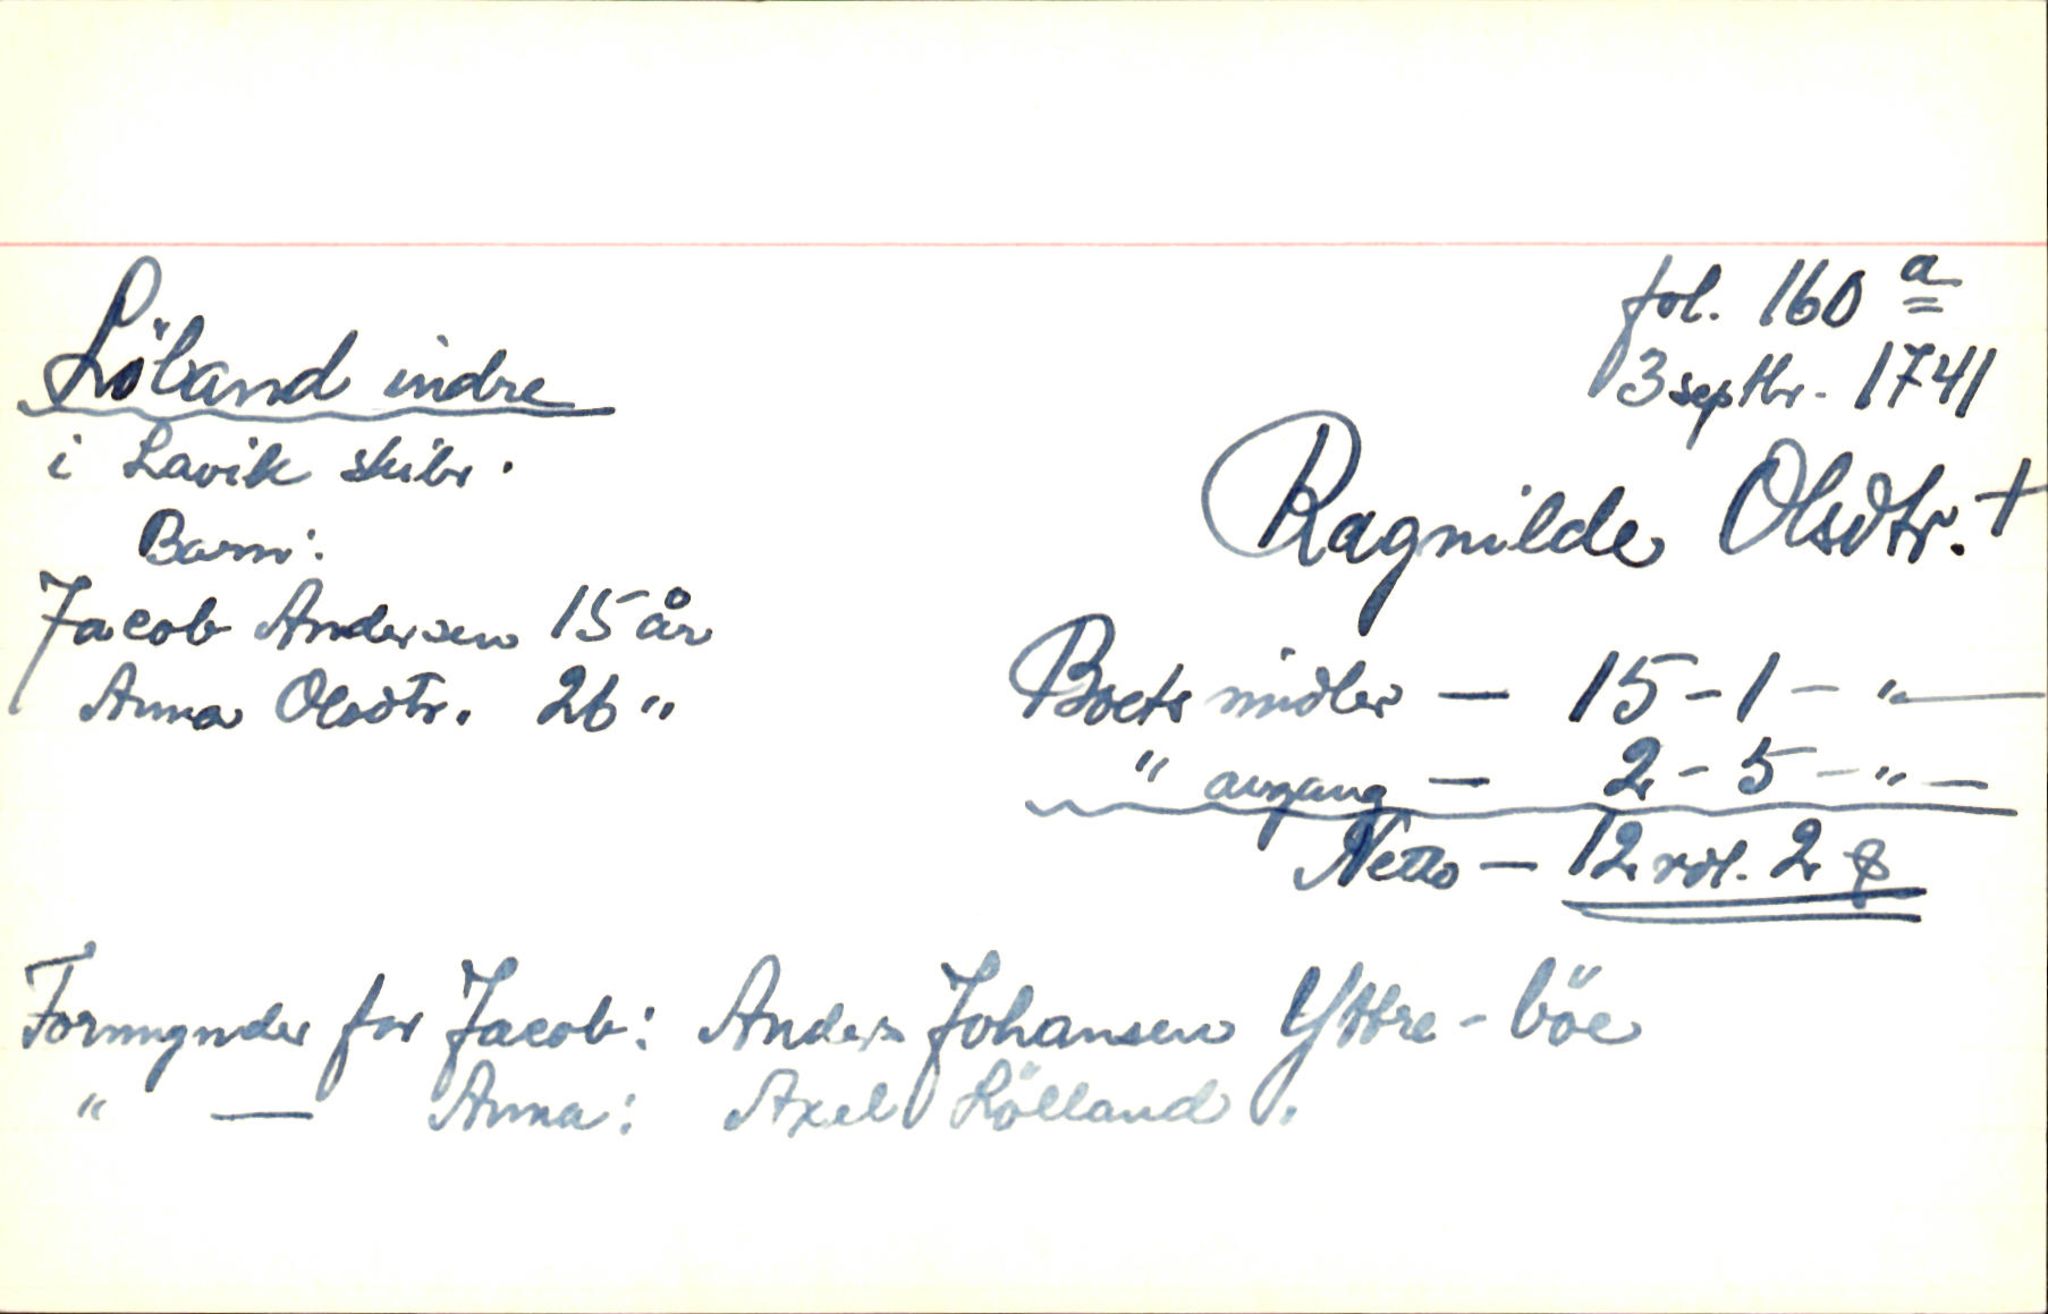 fol. 160 a
3 septbr. 1741
Löland indre
i Lavik skibr.
Ragnilde Olsdtr. +
Barn:
Jacob Andersen 15 år
Anna Olsdtr. 26 "
Boets midler — 15 - 1 - " —
" avgang — 2 - 5 - " —
Netto — 12 rdl. 2
Formynder for Jacob: Anders Johansen Yttre-böe
" — Anna: Axel Lölland.